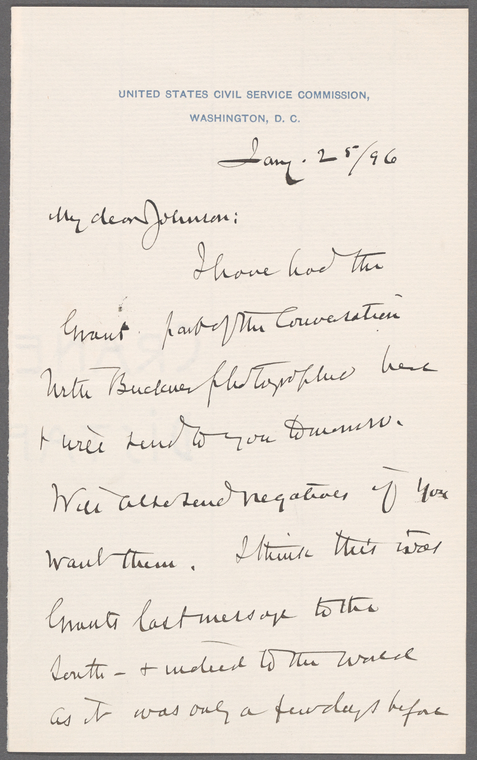 UNITED STATES CIVIL SERVICE COMMISSION,
WASHINGTON, D. C.
Jany. 25/96
My dear Johnson:
I have had the
Grant part of the Conversation
with Buckner photographed here
& will send to you tomorrow.
Will also send negatives if you
want them. I think this was
Grants last message to the
South - & indeed to the world
as it was only a few days before